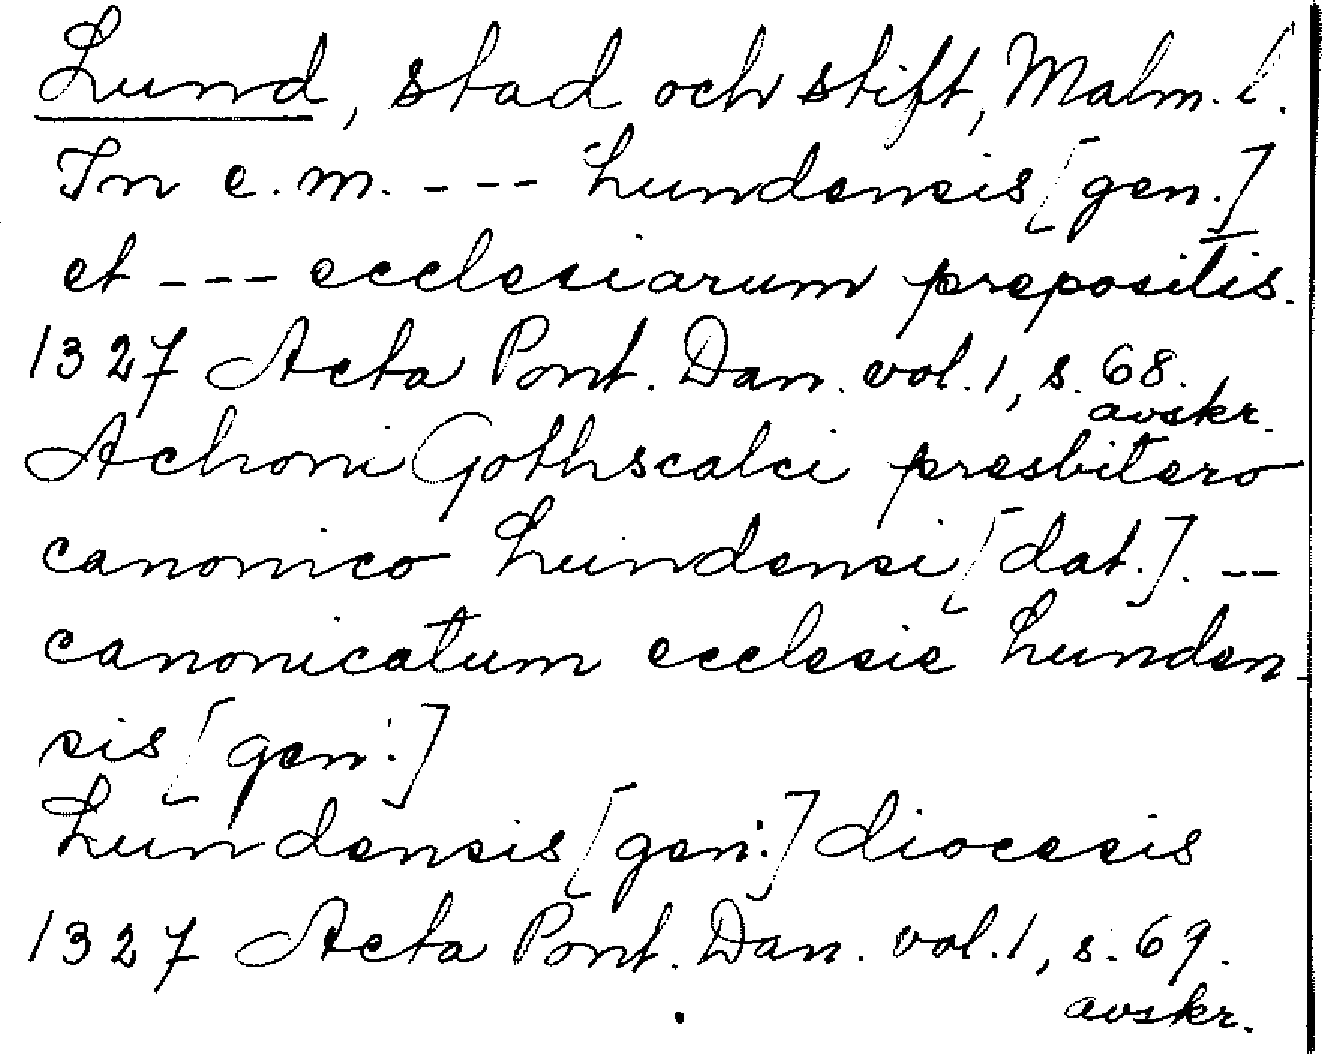 Lund, stad och stift, Malm. l.
In e. m. - - - Lundensis [gen.]
et - - - ecclesiarum prepositis.
1327 Acta Pont. Dan. vol. 1, s. 68.
avskr.
Achoni Gothscalci presbitero
canonico Lundensi [dat.]. - -
canonicatum ecclesie Lunden-
sis [gen.]
Lundensis [gen.] diocesis
1327 Acta Pont. Dan. vol. 1, s. 69.
avskr.